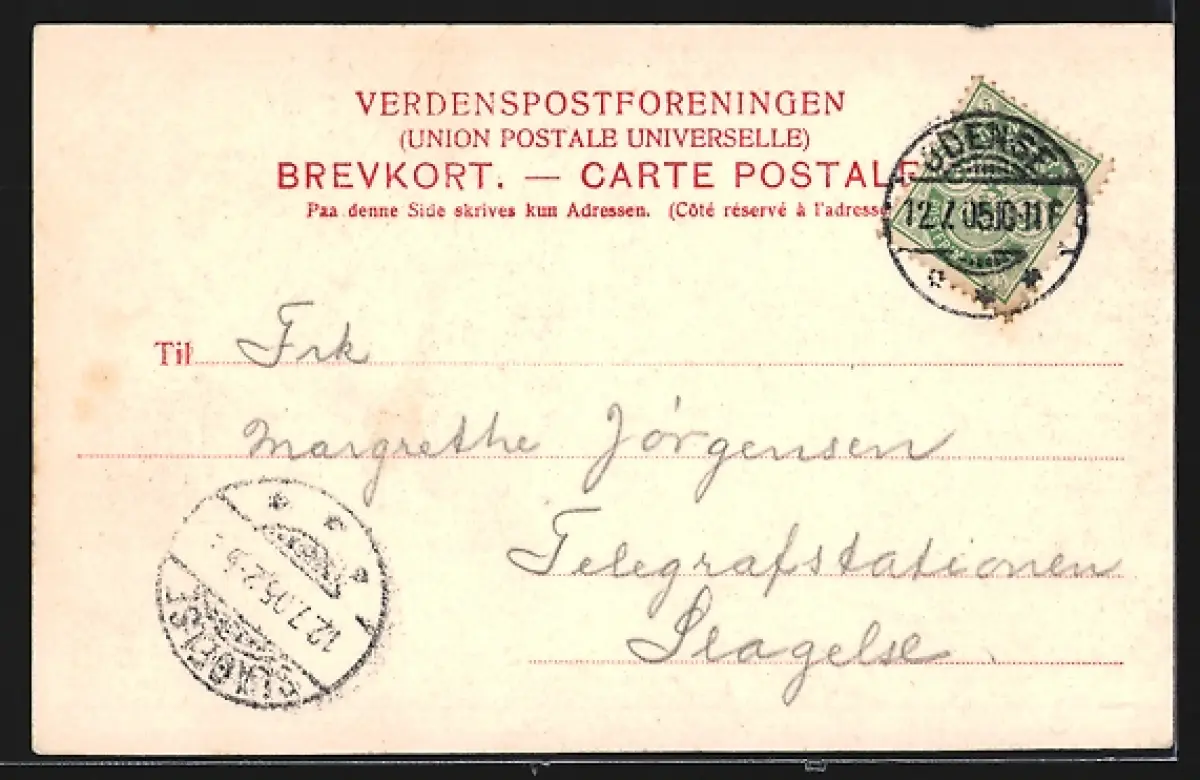 VERDENSPOSTFORENINGEN
(UNION POSTALE UNIVERSELLE)
BREVKORT. — CARTE POSTALE
Paa denne Side skrives kun Adressen. (Côté réservé à l'adresse
ODENSE
12.7.05.10-11F
Til Frk
Margrethe Jørgensen
Telegrafstationen
Slagelse
SLAGELSE
12.7.05.2